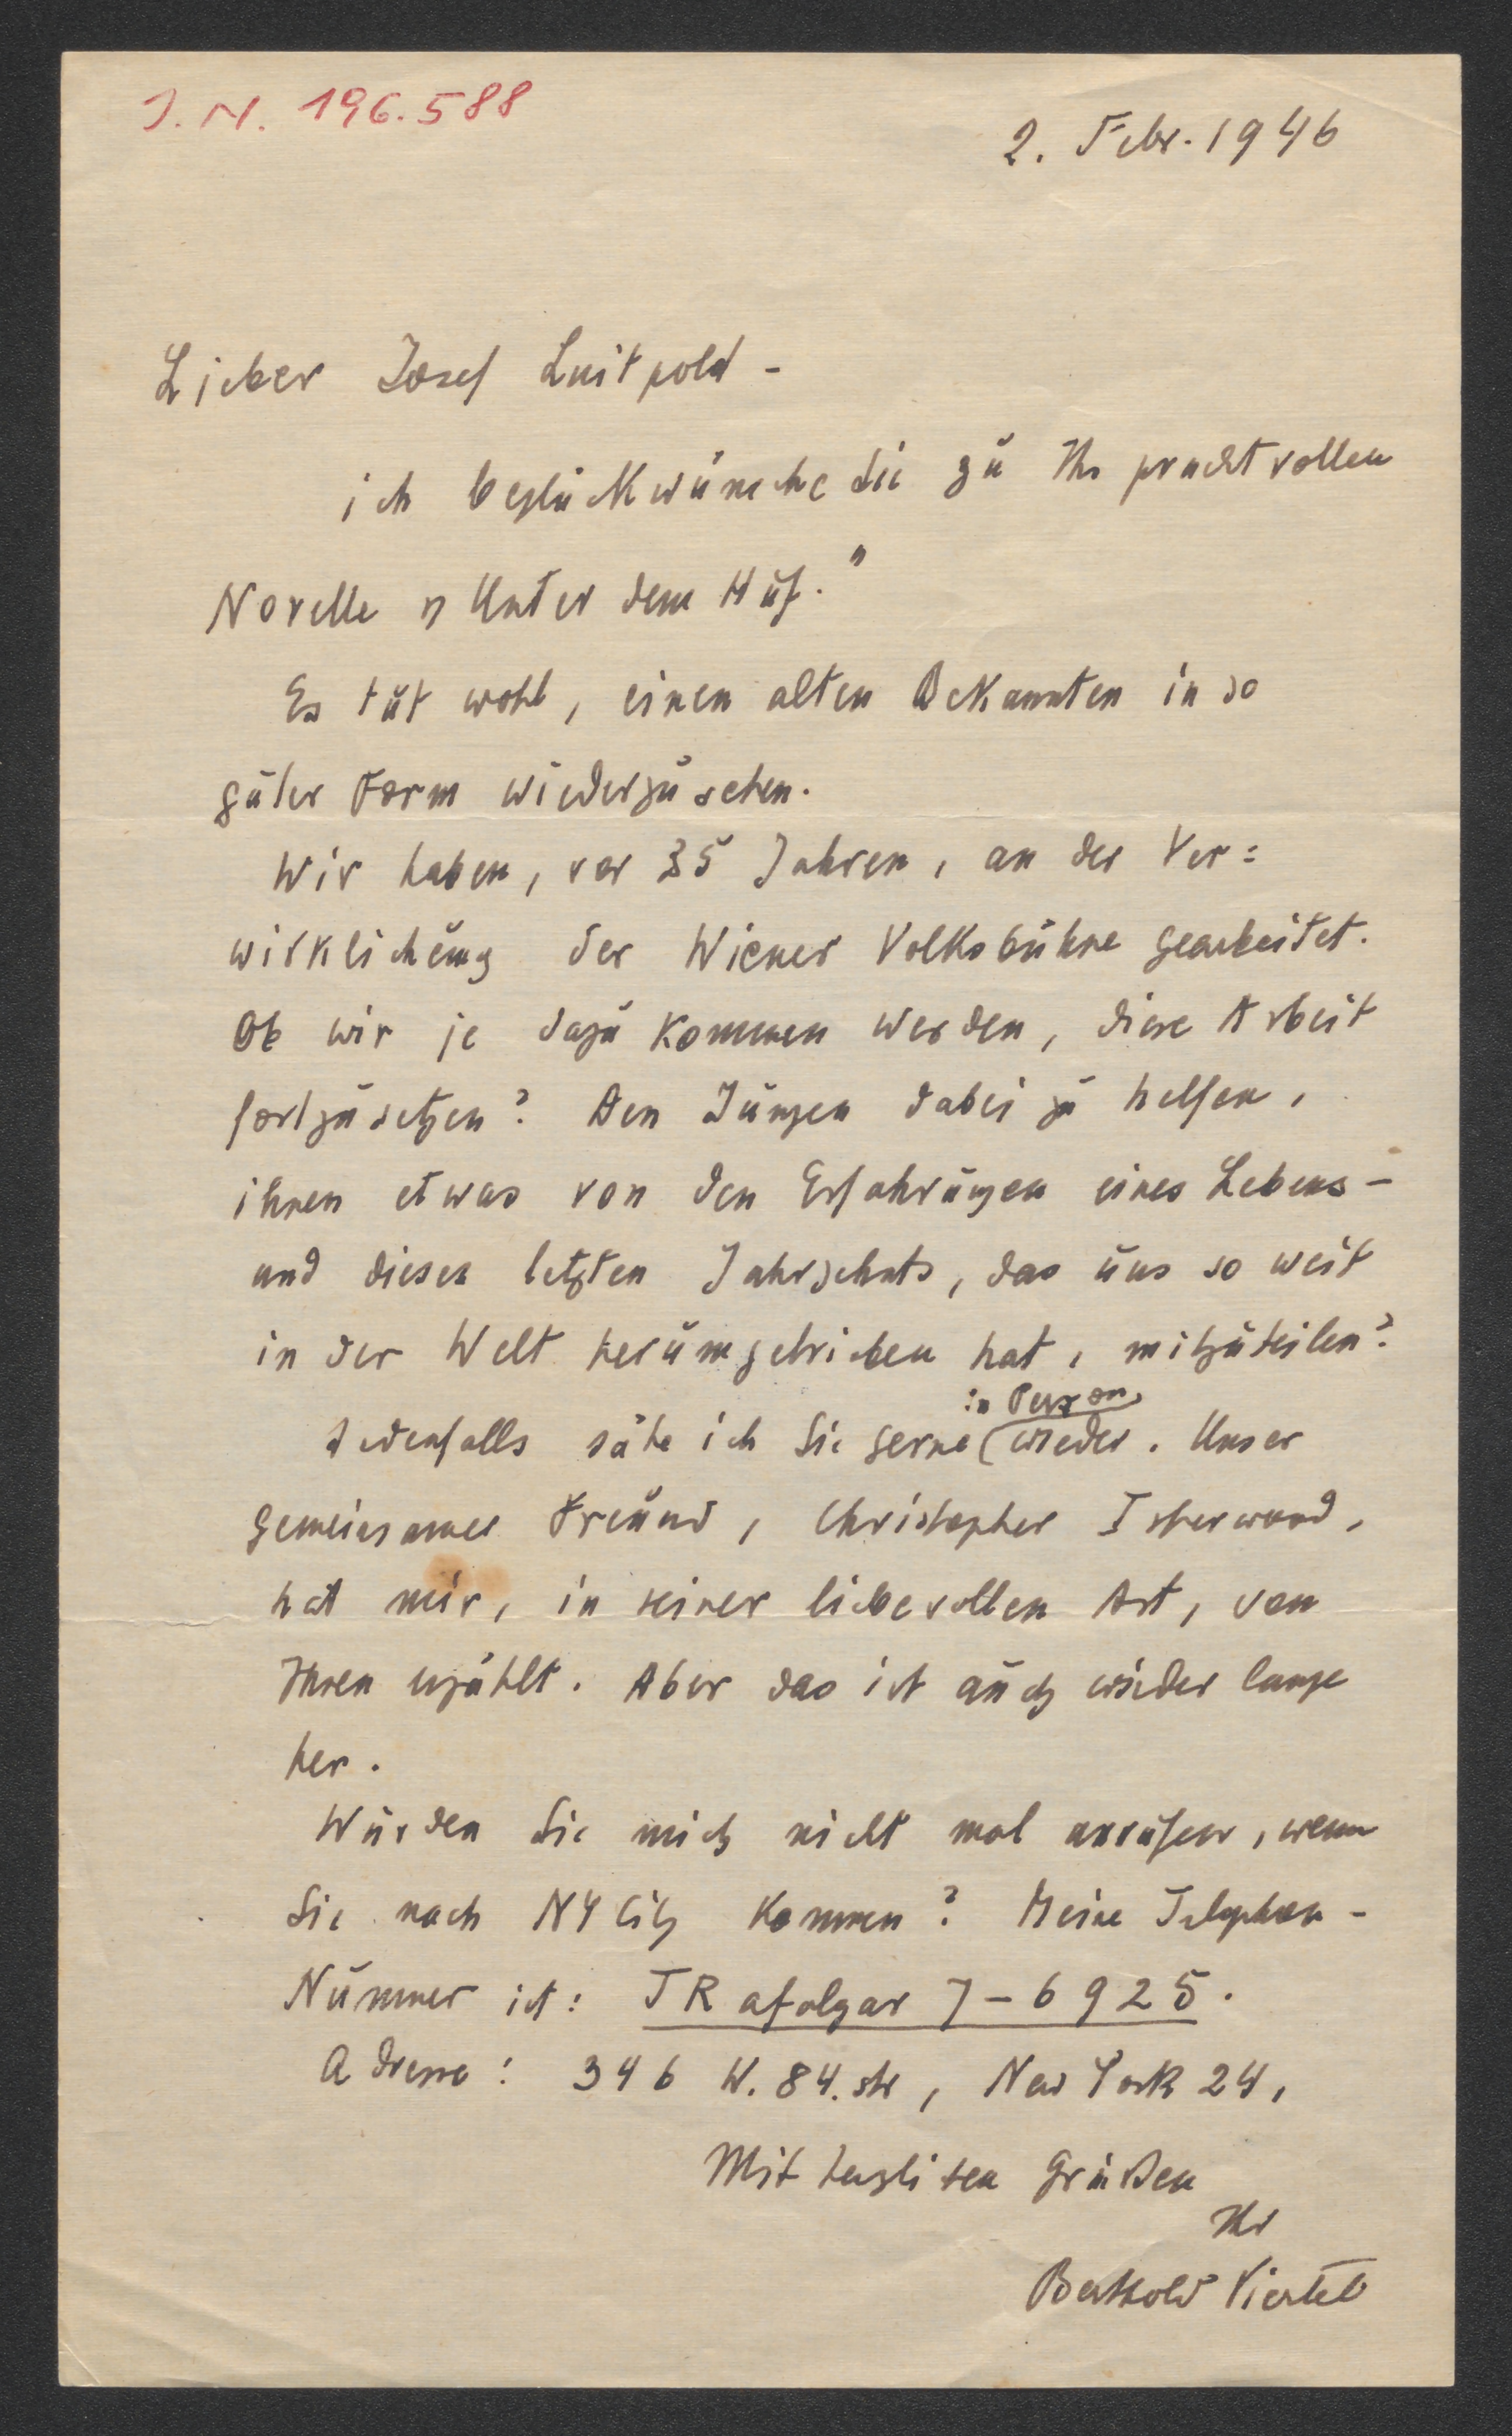 J. N. 196.588
2. Febr. 1946
Lieber Josef Luitpold -
ich beglückwünsche Sie zu Ihr prachtvollen
Novelle „Unter dem Huf."
Es tut wohl, einen alten Bekannten in so
guter Form wiederzusehen.
Wir haben, vor 35 Jahren, an der Ver=
wirklichung der Wiener Volksbühne gearbeitet.
Ob wir je dazu kommen werden, diese Arbeit
fortzusetzen? Den Jungen dabei zu helfen,
ihnen etwas von den Erfahrungen eines Lebens -
und dieses letzten Jahrzehnts, das uns so weit
in der Welt herumgetrieben hat, mitzuteilen?
in Person
Jedenfalls sähe ich Sie gerne wieder. Unser
gemeinsamer Freund, Christopher Isherwood,
hat mir, in seiner liebevollen Art, von
Ihnen erzählt. Aber das ist auch wieder lange
her.
Würden Sie mich nicht mal anrufen, wenn
Sie nach NY City kommen? Meine Telephon-
Nummer ist: TRafalgar 7-6925.
Adresse: 346 W. 84. str, New York 24,
Mit herzlichen Grüßen
Ihr
Berthold Viertel